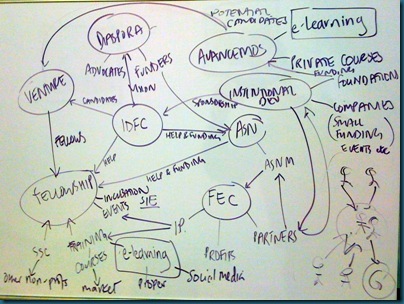 POTENTIAL
CANDIDATES
e-learning
DIASPORA
AVANCEMOS
PRIVATE COURSES
FUNDING
FOUNDATION
ADVOCATES
FUNDERS
VENTURE
INSTITUTIONAL
DEV
COMPANIES
SMALL
FUNDING
EVENTS etc
CANDIDATES
SPONSORSHIP
IDFC
HELP & FUNDING
ASN
FELLOWS
HELP
HELP & FUNDING
ASNM
FELLOWSHIP
INCUBATION
EVENTS
SIE
FEC
I.P.
PARTNERS
SSC
TRAINING
COURSES
e-learning
PROFITS
other non-profits
market
PROPER
Social media
G